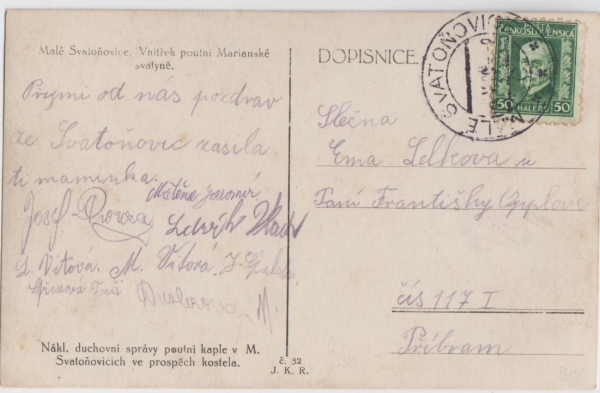 Malé Svatoňovice. Vnitřek poutní Marianské
svatyně.
Přijmi od nás pozdrav
ze Svatoňovic zasílá
ti maminka.
Matěna Jaromír
Josef
L. Vítová. M. Vítová. J.
M.
Nákl. duchovní správy poutní kaple v M.
Svatoňovicích ve prospěch kostela.
č. 52
J. K. R.
DOPISNICE.
MALÉ SVATOŇOVICE
ČESKOSLOVENSKÁ
50 HALÉŘŮ 50
Slečna
Ema Lelkova u
Paní Františky
čís 117 I
Příbram